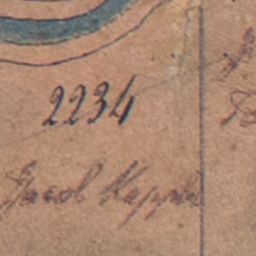 2234
Jacob Kappler